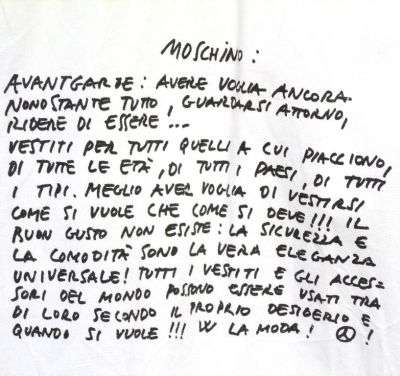 MOSCHINO:
AVANTGARDE: AVERE VOGLIA ANCORA.
NONOSTANTE TUTTO, GUARDARSI ATTORNO,
RIDERE DI ESSERE...
VESTITI PER TUTTI QUELLI A CUI PIACCIONO,
DI TUTTE LE ETÀ, DI TUTTI I PAESI, DI TUTTI
I TIPI. MEGLIO AVER VOGLIA DI VESTIRSI
COME SI VUOLE CHE COME SI DEVE!!! IL
BUON GUSTO NON ESISTE: LA SICUREZZA E
LA COMODITÀ SONO LA VERA ELEGANZA
UNIVERSALE! TUTTI I VESTITI E GLI ACCES=
SORI DEL MONDO POSSONO ESSERE USATI TRA
DI LORO SECONDO IL PROPRIO DESIDERIO E
QUANDO SI VUOLE!!! W LA MODA! ☮!